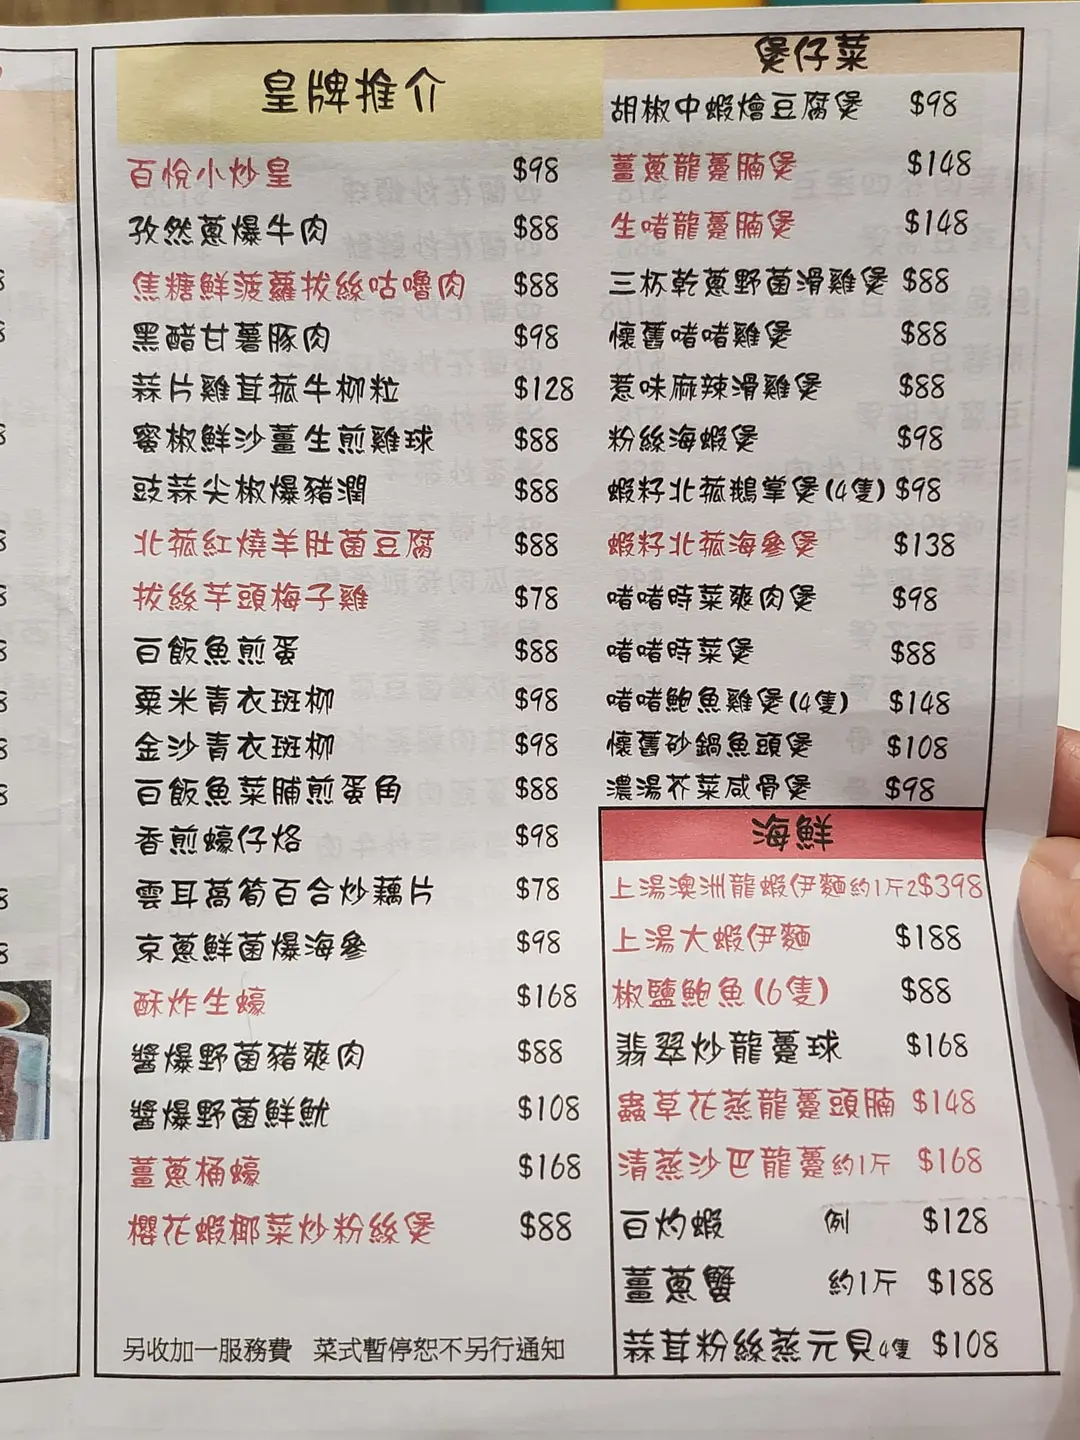 皇牌推介
百悅小炒皇 $98
孜然蔥爆牛肉 $88
焦糖鮮菠蘿拔絲咕嚕肉 $88
黑醋甘薯豚肉 $98
蒜片雞茸菰牛柳粒 $128
蜜椒鮮沙薑生煎雞球 $88
豉蒜尖椒爆豬潤 $88
北菰紅燒羊肚菌豆腐 $88
拔絲芋頭梅子雞 $78
白飯魚煎蛋 $88
粟米青衣斑柳 $98
金沙青衣斑柳 $98
白飯魚菜脯煎蛋角 $88
香煎蠔仔烙 $98
雲耳萵筍百合炒藕片 $78
京蔥鮮菌爆海參 $98
酥炸生蠔 $168
醬爆野菌豬爽肉 $88
醬爆野菌鮮魷 $108
薑蔥桶蠔 $168
櫻花蝦椰菜炒粉絲煲 $88
另收加一服務費 菜式暫停恕不另行通知
煲仔菜
胡椒中蝦燴豆腐煲 $98
薑蔥龍躉腩煲 $148
生啫龍躉腩煲 $148
三杯乾蔥野菌滑雞煲 $88
懷舊啫啫雞煲 $88
惹味麻辣滑雞煲 $88
粉絲海蝦煲 $98
蝦籽北菰鵝掌煲(4隻) $98
蝦籽北菰海參煲 $138
啫啫時菜爽肉煲 $98
啫啫時菜煲 $88
啫啫鮑魚雞煲(4隻) $148
懷舊砂鍋魚頭煲 $108
濃湯芥菜咸骨煲 $98
海鮮
上湯澳洲龍蝦伊麵約1斤2$398
上湯大蝦伊麵 $188
椒鹽鮑魚(6隻) $88
翡翠炒龍躉球 $168
蟲草花蒸龍躉頭腩 $148
清蒸沙巴龍躉約1斤 $168
白灼蝦 例 $128
薑蔥蟹 約1斤 $188
蒜茸粉絲蒸元貝4隻 $108